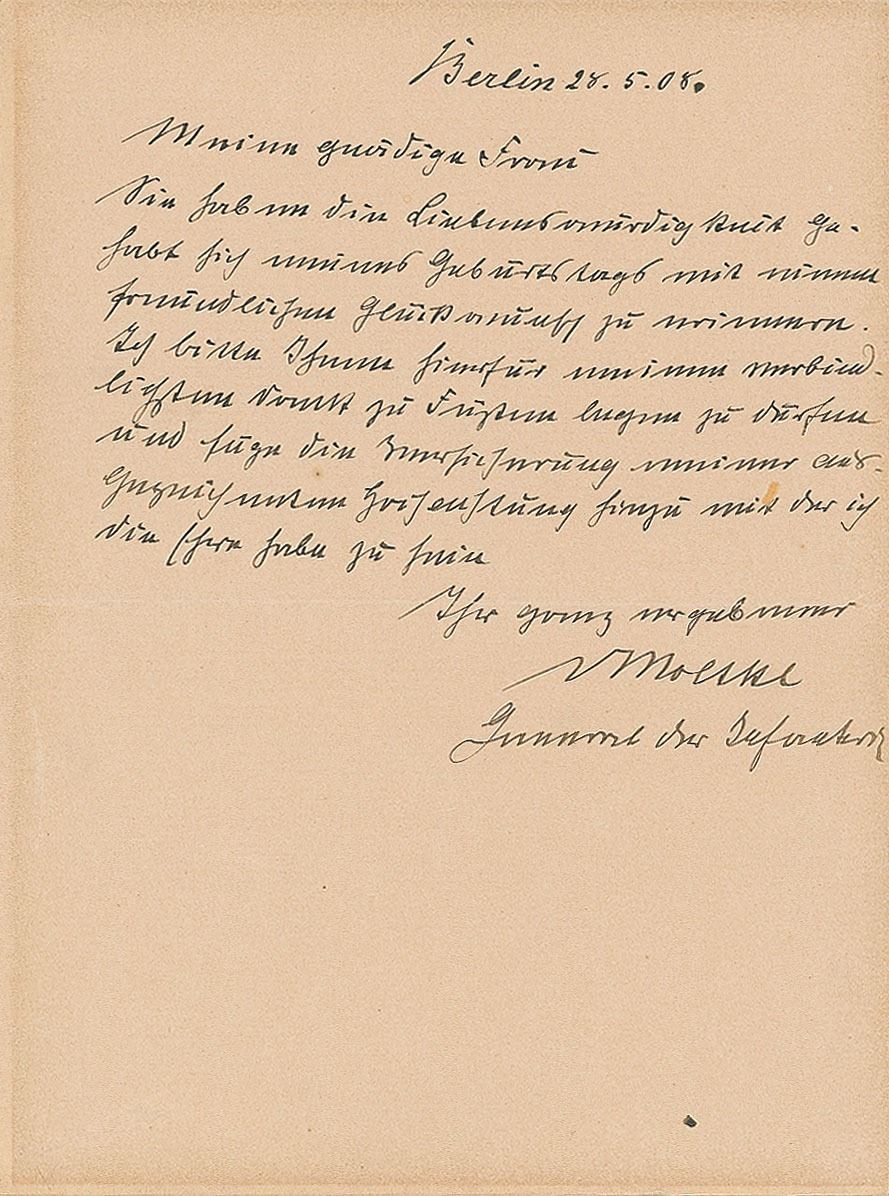 Berlin 28. 5. 08.
Meine gnädige Frau
Sie haben die Liebenswürdigkeit ge-
habt sich meines Geburtstags mit einem
freundlichen Glückwunsch zu erinnern.
Ich bitte Ihnen hierfür meinen verbind-
lichsten Dank zu Füßen legen zu dürfen
und füge die Versicherung meiner aus-
gezeichneten Hochachtung hinzu mit der ich
die Ehre habe zu sein
Ihr ganz ergebener
v Moltke
General der Infanterie